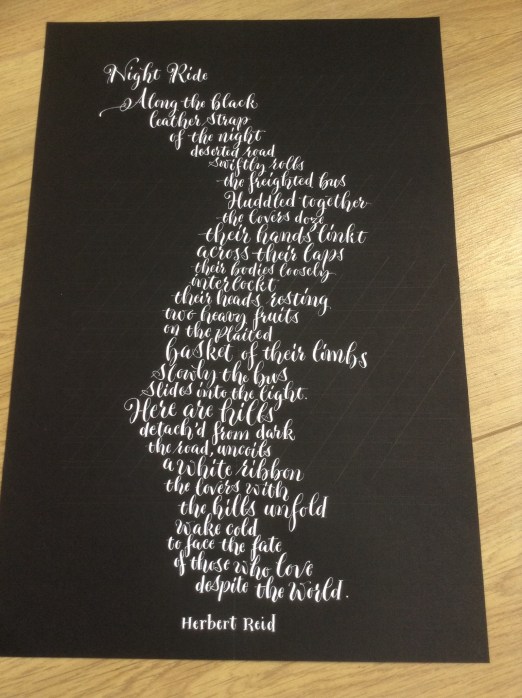 Night Ride
Along the black
leather strap
of the night
deserted road
swiftly rolls
the freighted bus
Huddled together
the lovers doze
their hands linkt
across their laps
their bodies loosely
interlockt
their heads resting
two heavy fruits
on the plaited
basket of their limbs
Slowly the bus
slides into the light.
Here are hills
detach'd from dark
the road, uncoils
a white ribbon
the lovers with
the hills unfold
wake cold
to face the fate
of those who love
despite the world.
Herbert Reid